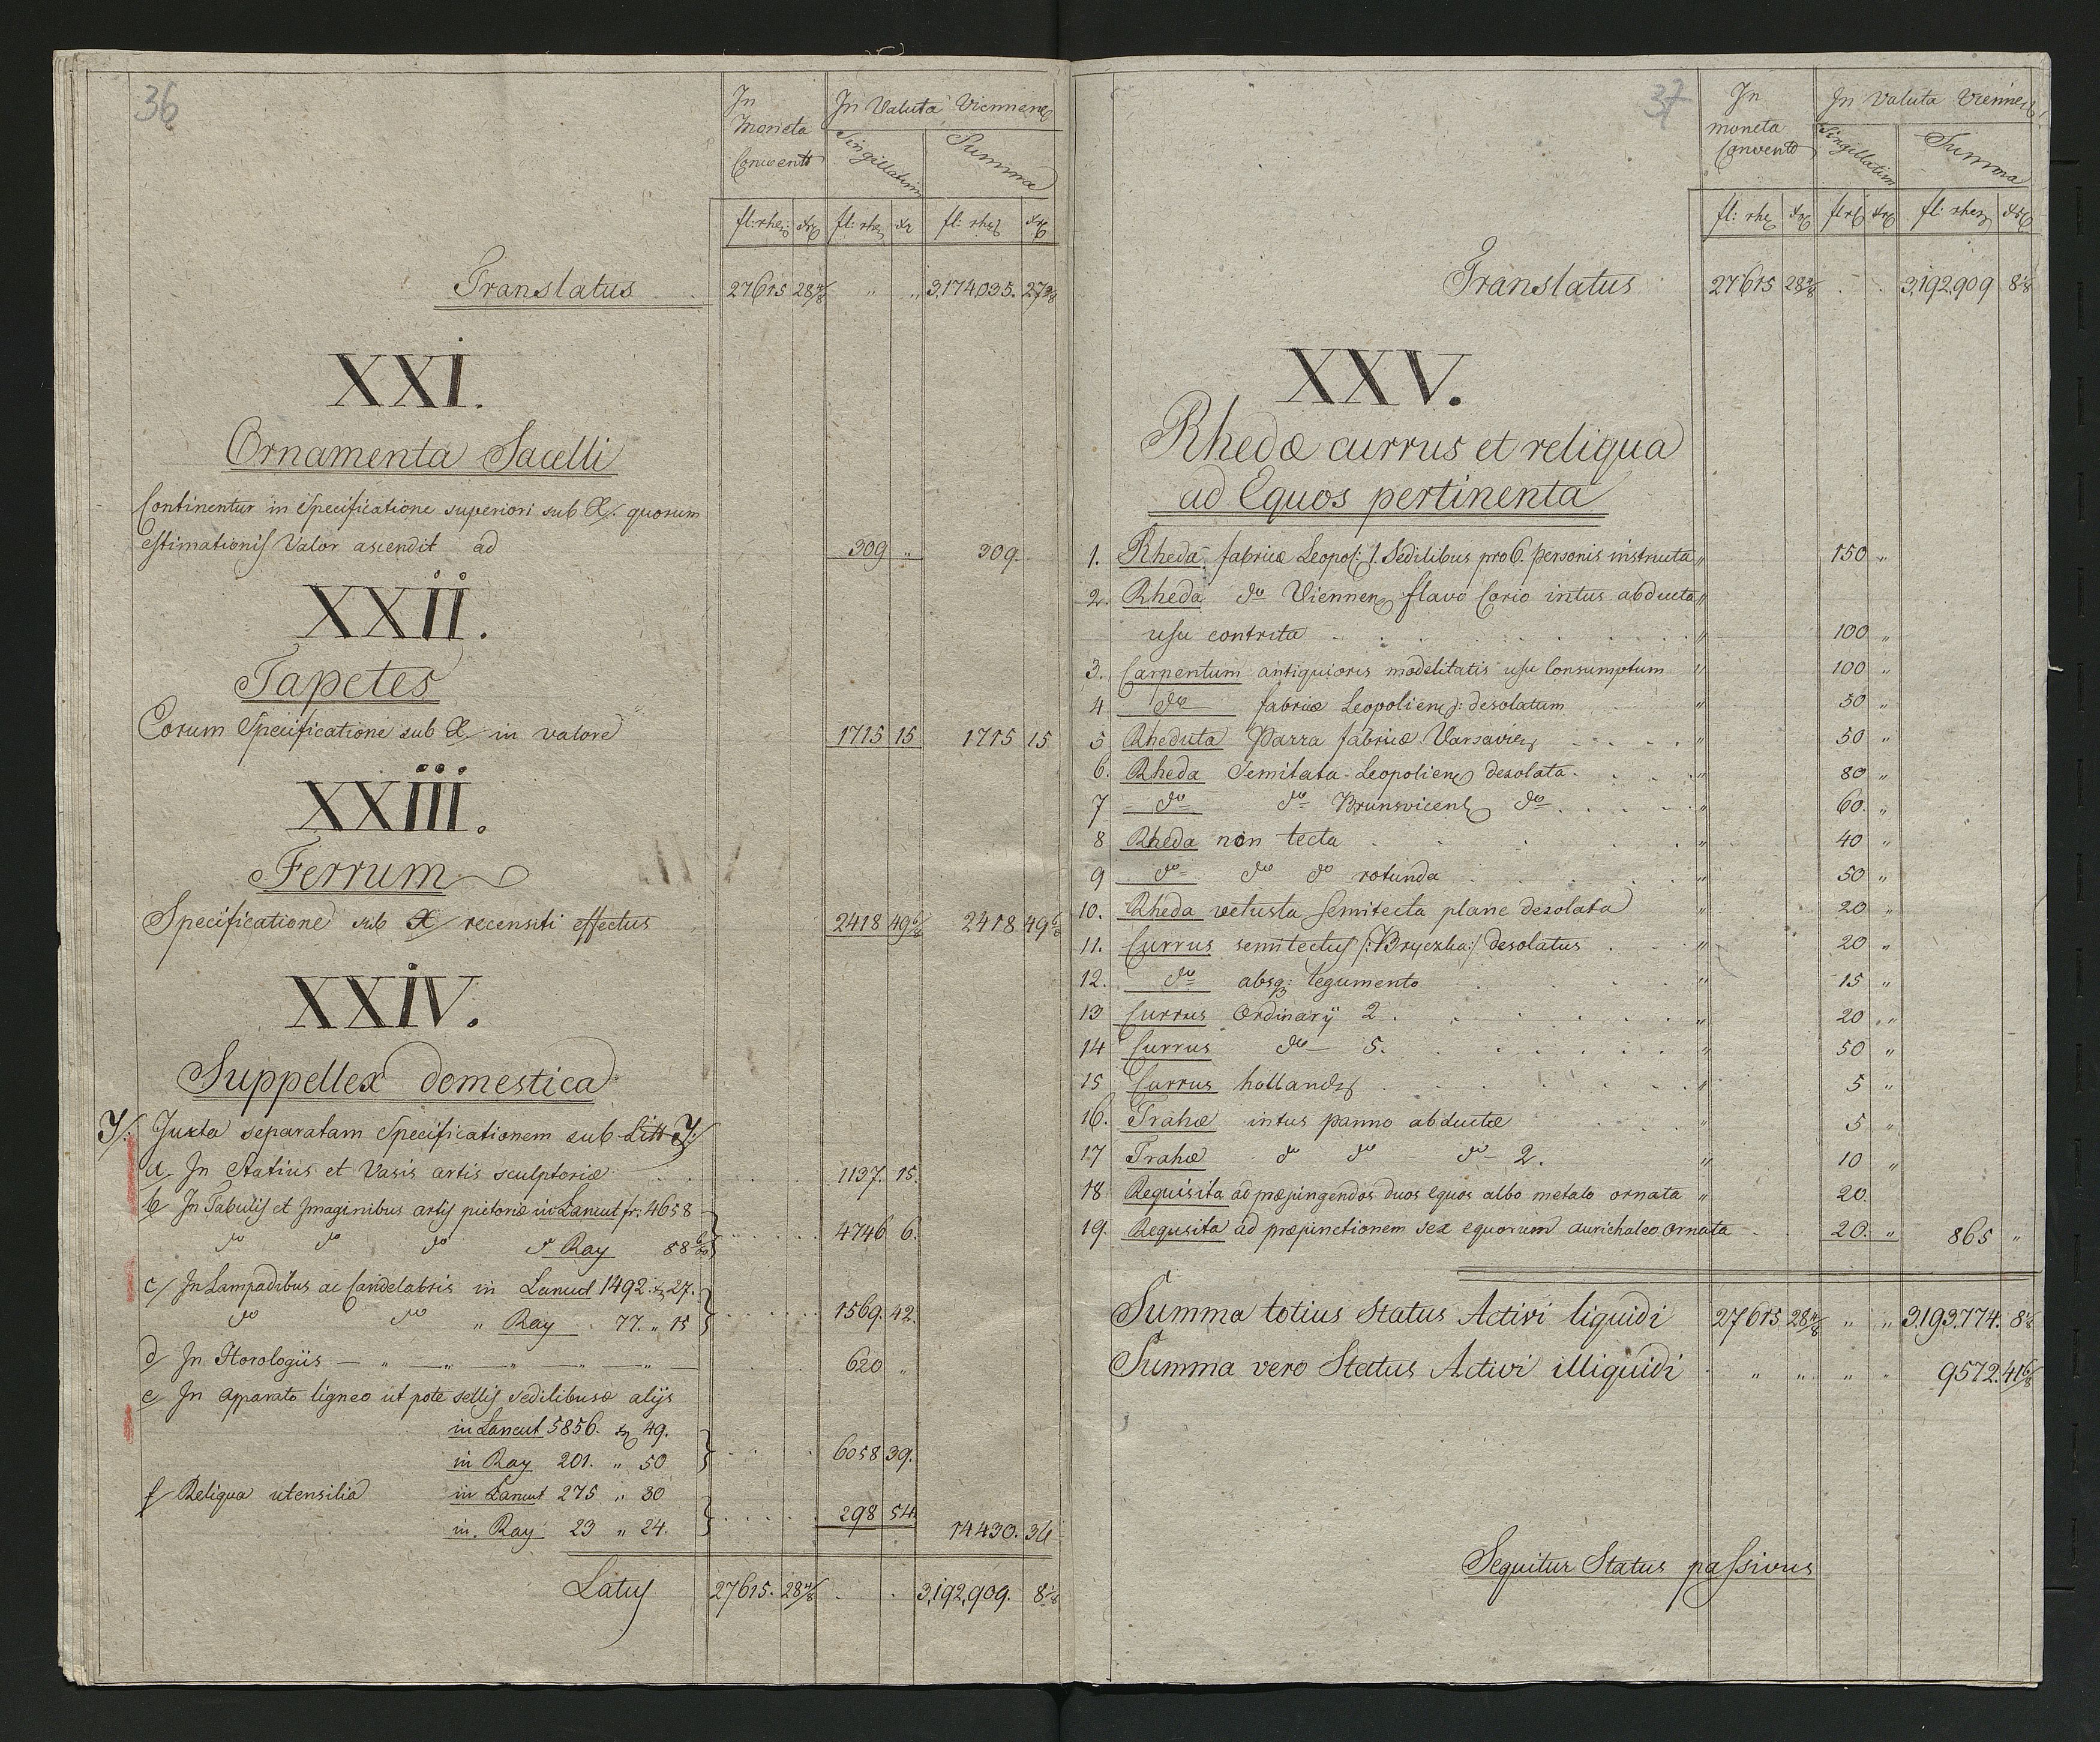 36
In Moneta Convents
In Valuta Viennens
Singillatim
Summa
fl: rhen: xr fl: rhen xr fl: rhen xr
Translatus 27615 28 4/8 " " 3,174,035. 27 3/8
XXI.
Ornamenta Sacelli
Continentur in Specificatione superiori sub X/. quorum
estimationis Valor ascendit ad 309 " 309.
XXII.
Tapetes
Eorum Specificatione sub X/ in valore 1715 15 1715 15
XXIII.
Ferrum
Specificatione sub X/ recensiti effectus 2418 49 6/8 2418 49 6/8
XXIV.
Suppellex domestica
Y/: Juxta separatam Specificationem sub Litt Y:/
a. In Statius et Vasis artis sculptoriæ 1137. 15.
b/ In Tabulis et Imaginibus artis pictoriæ in Lancut fr: 4658
do do do " Ray 88 6/ } 4746 6.
c/ In Lampadibus ac Candelabris in Lancut 1492. xr 27.
do do " Ray 77. " 15 } 1569. 42.
d/ In Horologiis — " — " — " — " — 620 "
e/ In apparato ligneo ut pote sellis sedilibusæ alijs
in Lancut 5856. xr 49.
in Ray 201. " 50 } 6058 39.
f/ Reliqua utensilia in Lancut 275 " 30
in Ray 23 " 24. } 298 54 14430. 36
Latus 27615. 28 4/8 3,192,909. 8 1/8
37
In moneta Convents
In Valuta Viennens
Singillatim
Summa
fl: rhen xr fl r xr fl: rhen xr
Translatus 27615 28 4/8 3,192,909 8 1/8
XXV.
Rhedæ currus et reliqua
ad Equos pertinenta
1. Rheda fabricæ Leopol: /. Sedilibus pro 6. personis instructa " 150 "
2. Rheda do Viennens flavo Corio intus abducta "
usu contrita " 100 "
3. Carpentum antiquioris modelitatis usu Consumptum " 100 "
4 do fabricæ Leopoliens: desolatum " 50 "
5 Rheduta Parra fabricæ Varsaviens " 50 "
6. Rheda Semitata Leopoliens desolata " 80 "
7 do do Brunsvicens do " 60. "
8 Rheda non tecta " 40 "
9 do do do rotunda " 50 "
10. Rheda vetusta semitecta plane desolata " 20 "
11. Currus semitectus /:Bryczka:/ desolatus " 20 "
12. do absq: tegumento " 15 "
13 Currus Ordinarÿ 2. " 20 "
14 Currus do 5. " 50 "
15 Currus hollands " 5 "
16. Trahæ intus panno abductæ " 5 "
17 Trahæ do do do 2. " 10 "
18. Requisita ad præpingendos duos equos albo metalo ornata " 20.
19. Requsita ad præpinctionem sex equorum aurichalco ornata 20. " 865 "
Summa totius Status Activi liquidi 27615 28 4/8 " " 3,193,774. 8 1/8
Summa vero Status Activi illiquidi " " " " 9572. 41 6/8
Sequitur Status passivus